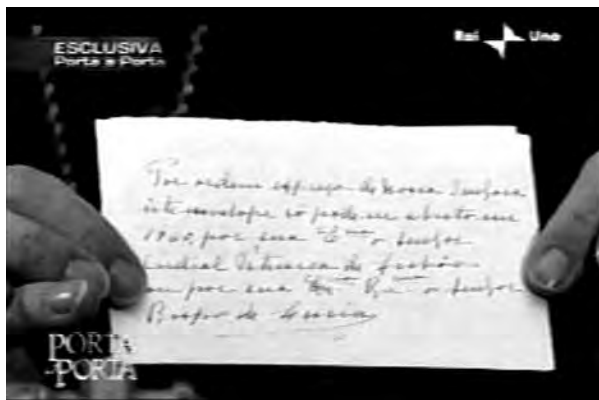 ESCLUSIVA
Porta a Porta
Rai Uno
Por ordem expressa de Nossa Senhora
este envelope só pode ser aberto em
1960, por sua o Senhor
Cardial Patriarca de Lisboa
ou por sua o Senhor
Bispo de Leiria
PORTA
-PORTA